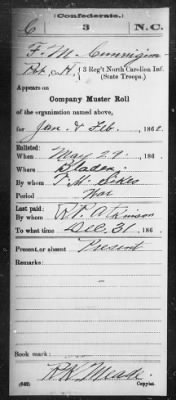 (Confederate.)
C 3 N.C.
F. M. Cunnigim
Pvt, Co. H, 3 Reg't North Carolina Inf.
(State Troops.)
Appears on
Company Muster Roll
of the organization named above,
for Jan & Feb, 1862.
Enlisted:
When May 29, 186 .
Where Bladen
By whom T. M. Sikes
Period War
Last paid:
By whom R. P. Atkinson
To what time Dec. 31, 186 .
Present or absent Present
Remarks:
Book mark:
R K Meade
(642) Copyist.